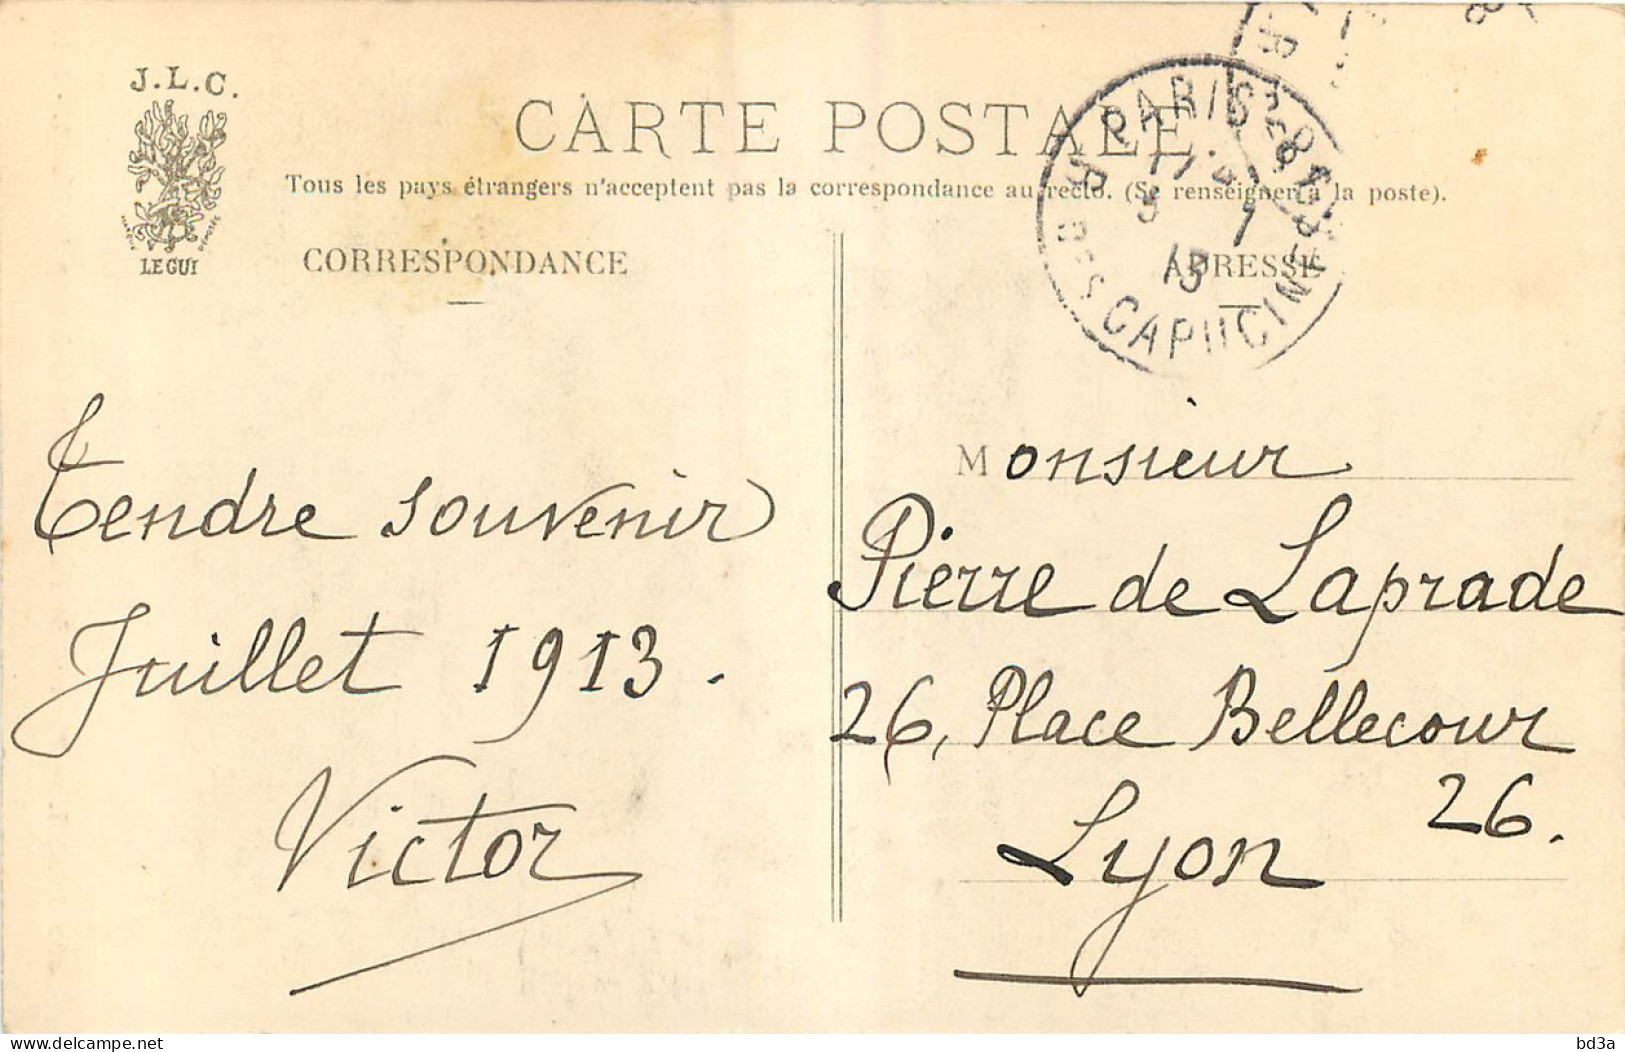 J.L.C.
LE GUI
CARTE POSTALE
Tous les pays étrangers n'acceptent pas la correspondance au recto. (Se renseigner à la poste).
CORRESPONDANCE
ADRESSE
PARIS
17
5 7
13
CAPUCINE
Tendre souvenir
Juillet 1913.
Victor
Monsieur
Pierre de Laprade
26, Place Bellecour
26.
Lyon
delcampe.net
bd3a